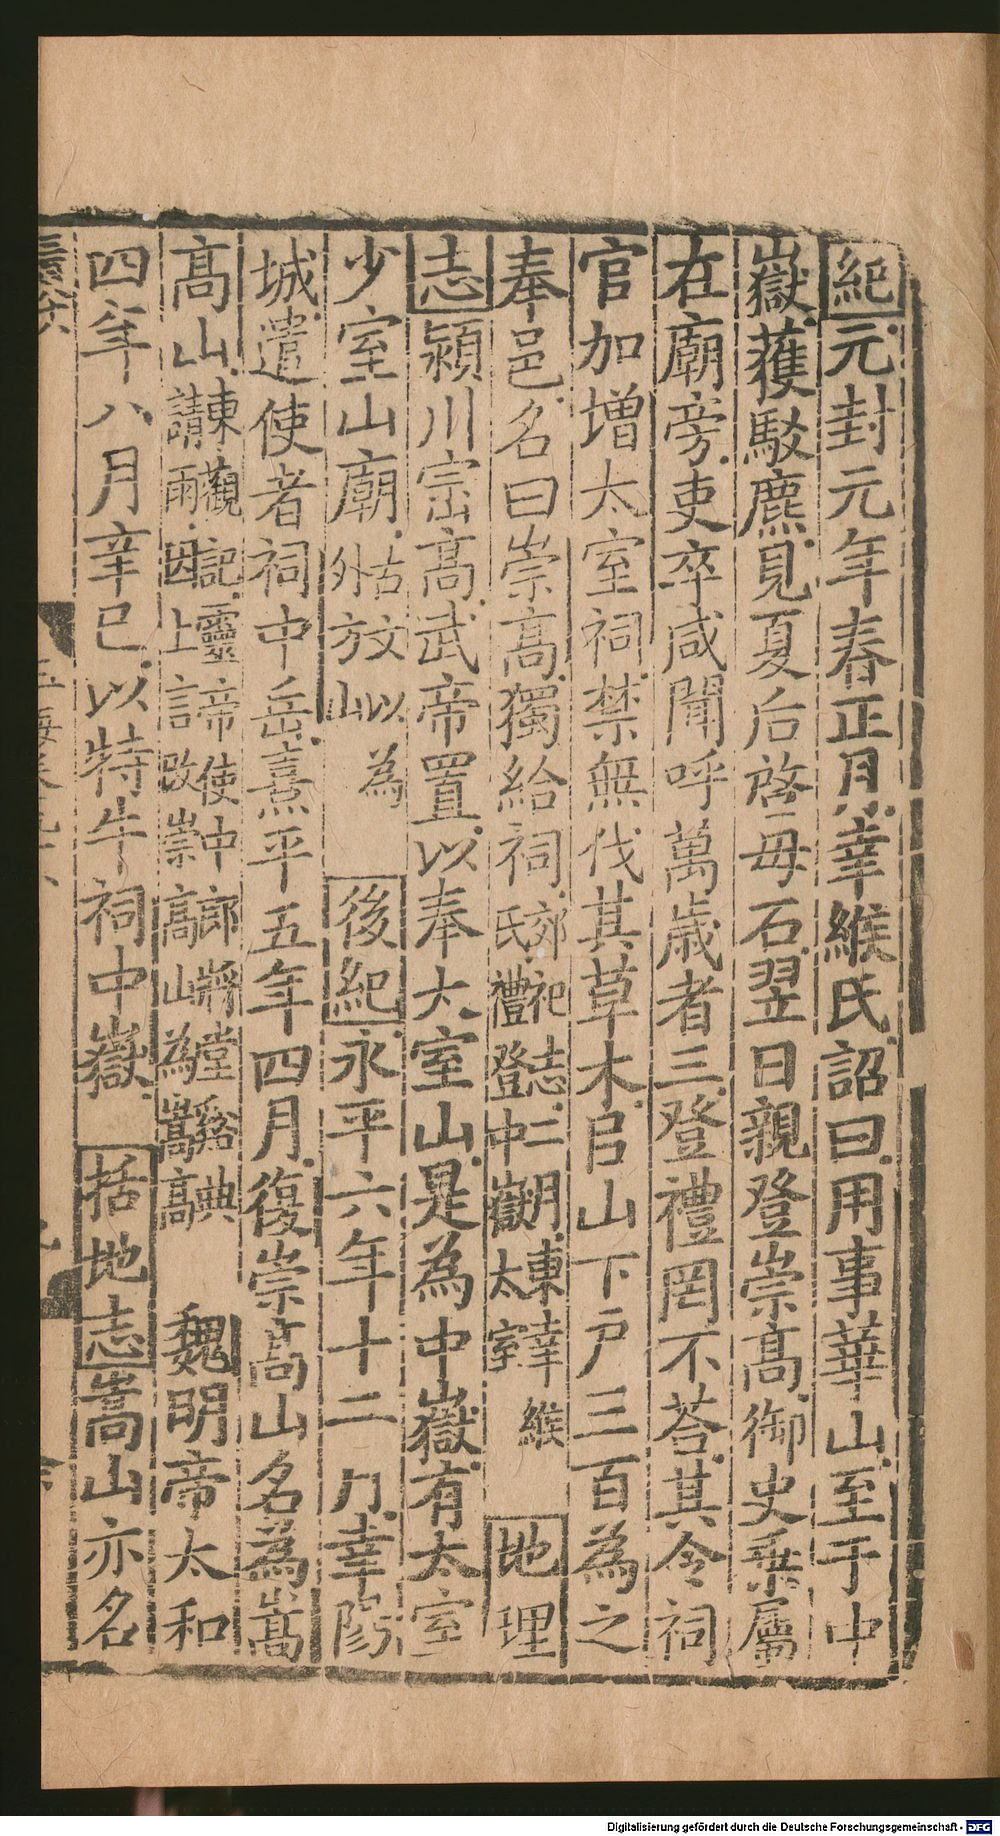 紀元封元年春正月幸緱氏詔曰用事華山至于中
嶽獲駮麃見夏后啓母石翌日親登崇髙御史乗屬
在廟旁吏卒咸聞呼萬歳者三登禮罔不荅其令祠
官加增太室祠禁無伐其草木㠯山下戶三百為之
奉邑名曰崇髙獨給祠郊祀志二月東幸緱
氏禮登中嶽太室
地理
志潁川崈髙武帝置以奉大室山是為中嶽有太室
少室山廟古文以為
外方山
後紀永平六年十二月幸陽
城遣使者祠中岳熹平五年四月復崇髙山名為嵩
髙山東觀記靈帝使中郎將堂谿典
請雨因上言改崇髙山為嵩髙
魏明帝太和
四年八月辛巳以特牛祠中嶽
括地志嵩山亦名
Digitalisierung gefördert durch die Deutsche Forschungsgemeinschaft - DFG